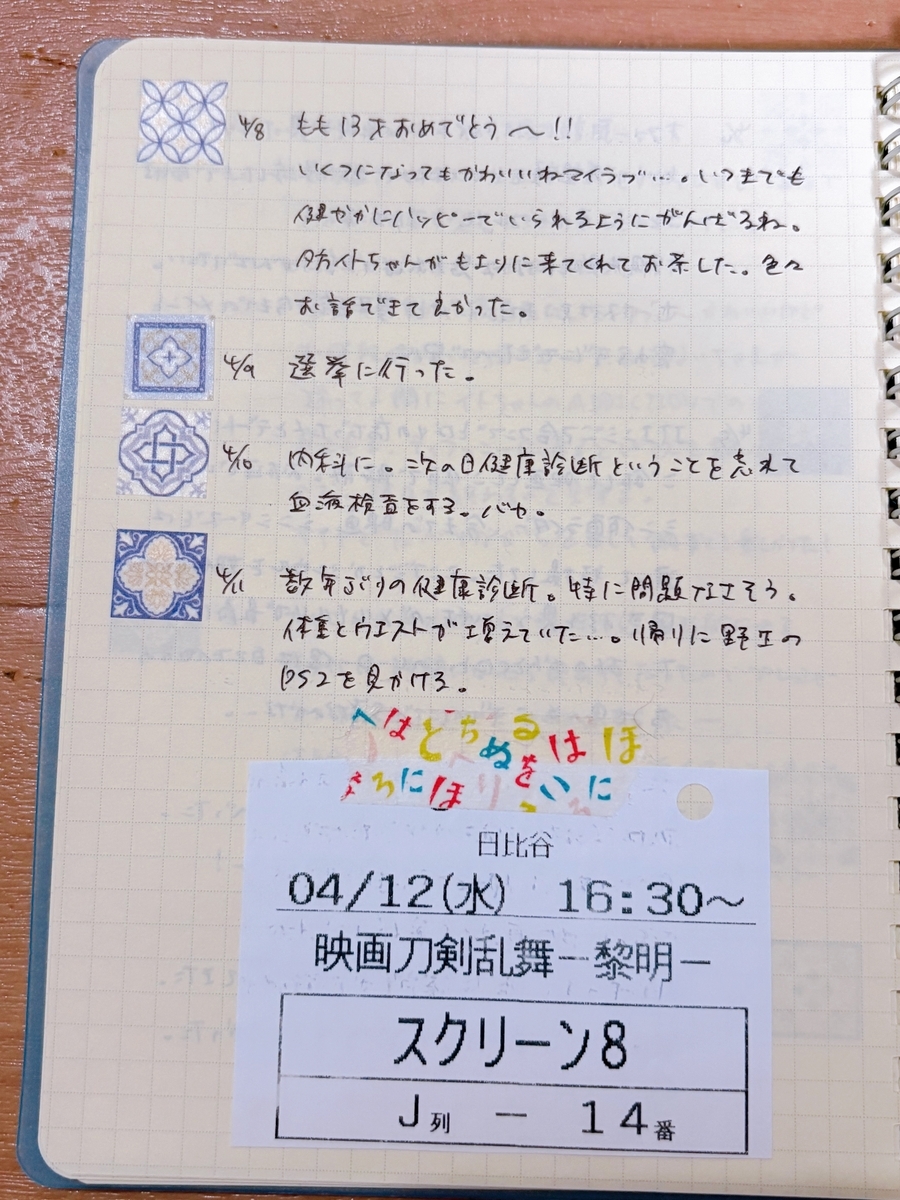 4/8 もも13才おめでとう〜!!
いくつになってもかわいいねマイラブ…。いつまでも
健やかにハッピーでいられるようにがんばるね。
ちゃんがもよりに来てくれてお茶した。色々
お話できてよかった。
4/9 選挙に行った。
4/10 内科に。次の日健康診断ということを忘れて
血液検査をする。バカ。
4/11 数年ぶりの健康診断。特に問題なさそう。
体重とウエストが増えていた…。帰りに野生の
PS2を見かける。
へ は ど ち る
ぬ を は ほ
ろ に ほ り い に
日比谷
04/12(水) 16:30～
映画刀剣乱舞－黎明－
スクリーン8
J列 － 14番